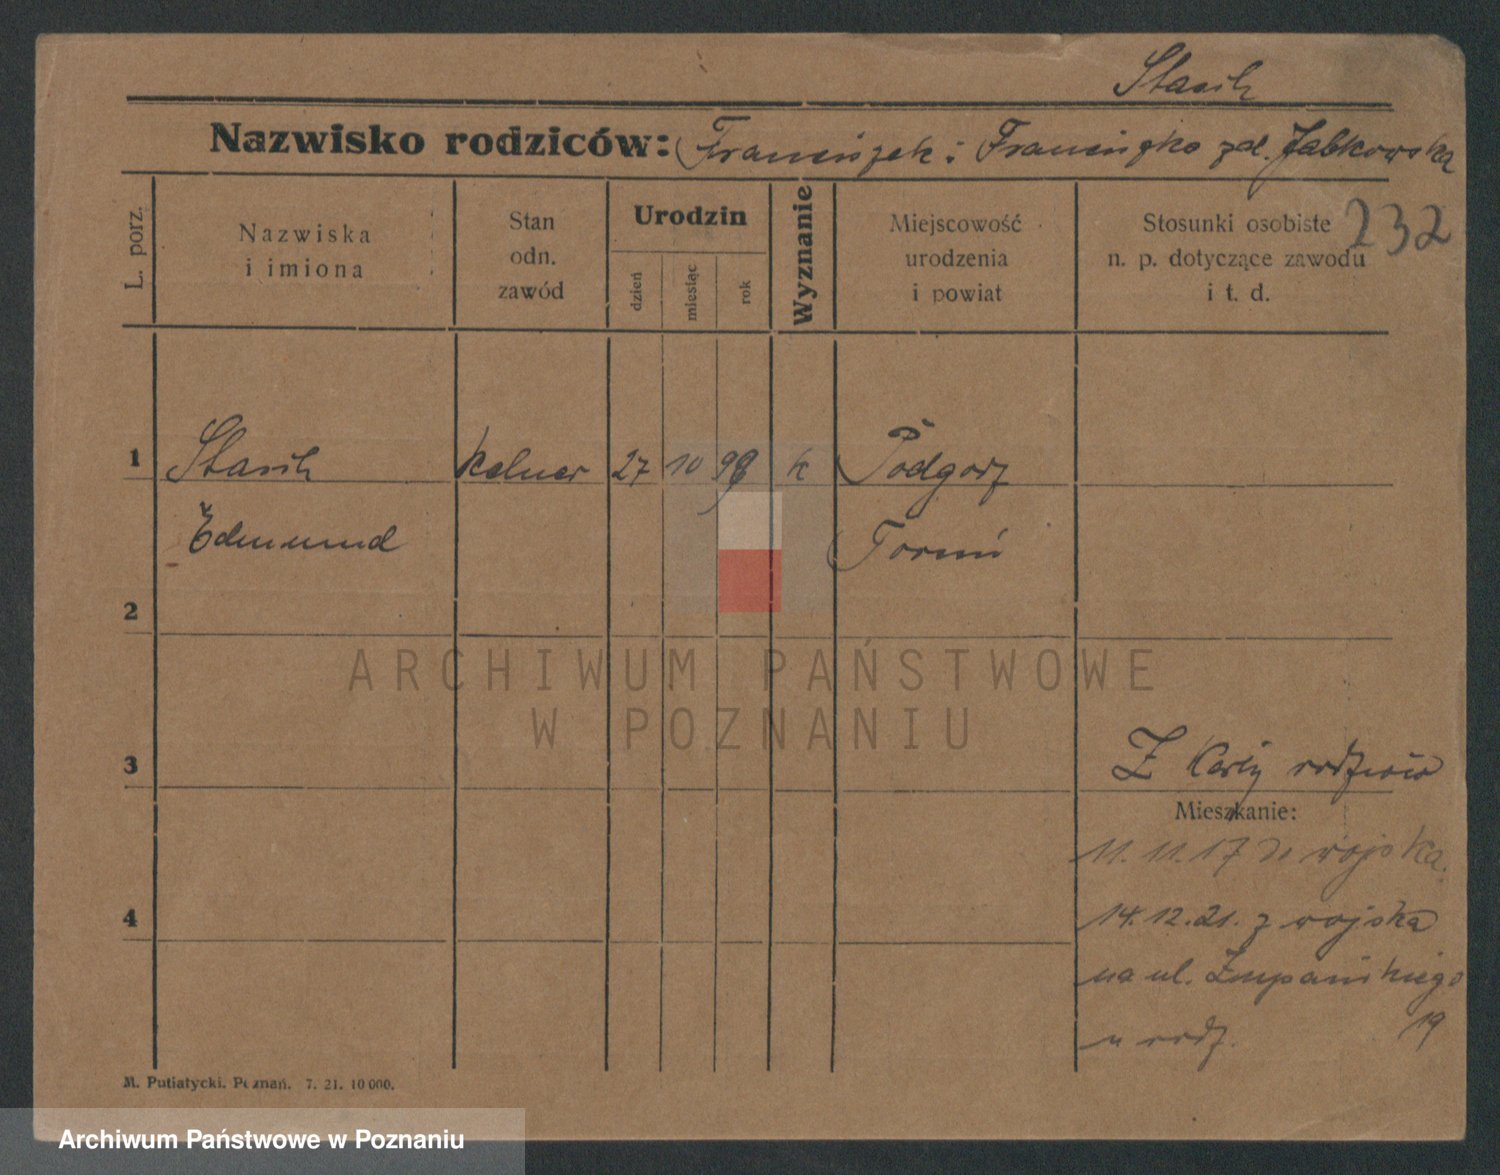 Stasik
Nazwisko rodziców: Franciszek i Franciszka zd. Jabkowska
232
L. porz.
Nazwiska
i imiona
Stan
odn.
zawód
Urodzin
dzień
miesiąc
rok
Wyznanie
Miejscowość
urodzenia
i powiat
Stosunki osobiste
n. p. dotyczące zawodu
i t. d.
1 Stasik kelner 27 10 98 k Podgorz
Edmund Toruń
2
ARCHIWUM PAŃSTWOWE
W POZNANIU
3 Z Karty rodziców
Mieszkanie:
11.11.17 do wojska.
14.12.21. z wojska
4
na ul. Żupańskiego
u rodz. 19
M. Putiatycki. Poznań. 7. 21. 10 000.
Archiwum Państwowe w Poznaniu